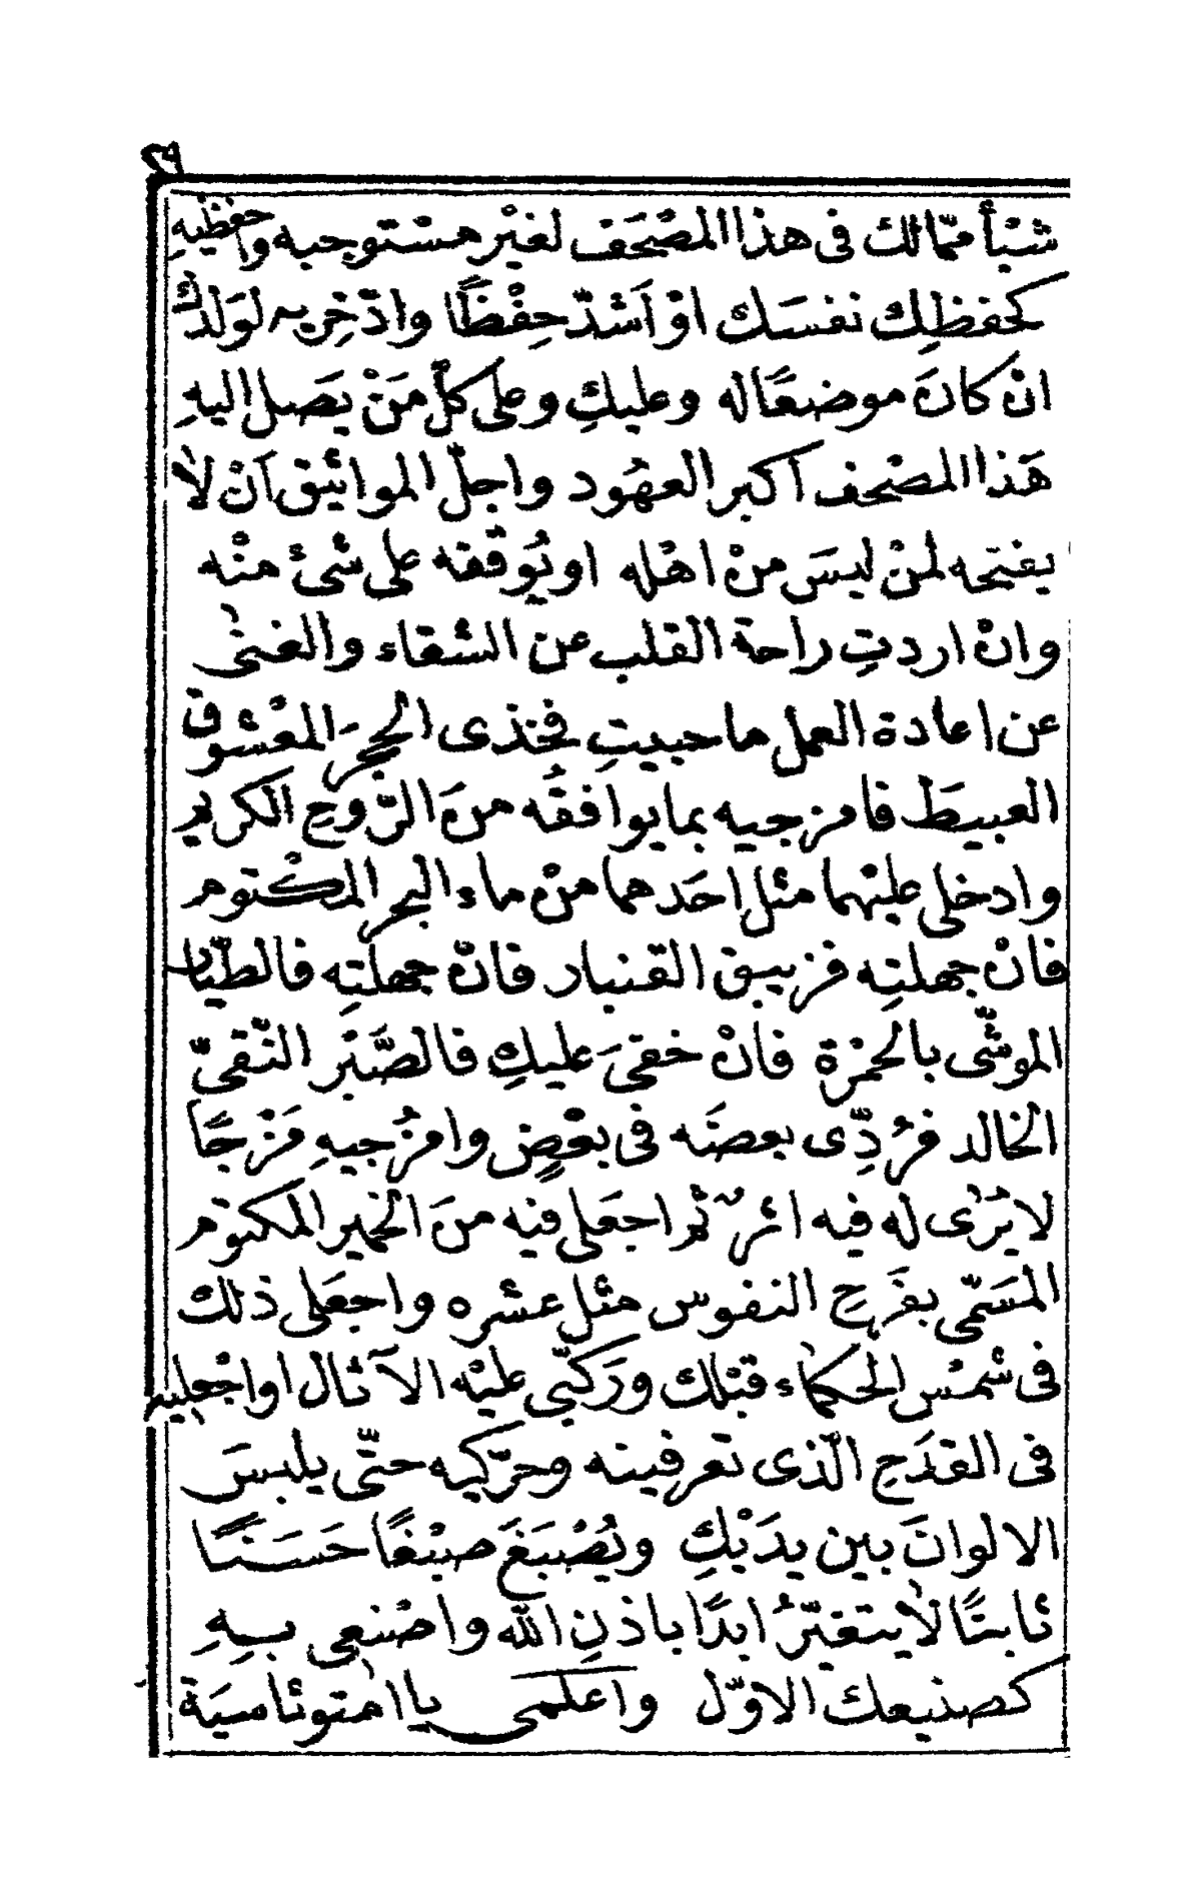 ٢٩
شئاً ممّالك فى هذا المصْحَف لغيْر مسْتوجبه واحفظيهِ
كحفظِك نفسَك اوْ اَشدّ حِفْظًا وادّخِريه لوَلدك
انْ كانَ موضعًاله وعليكِ وعلى كلّ مَنْ يَصل اليهِ
هَذا المصْحف اكبر العهُود واجلّ المواثيق اَنْ لا
يفتحه لمنْ ليسَ منْ اهْله او يُوَقّفه على شئ منْه
وانْ اردتِ راحة القلب عن الشقاء والغنى
عن اعادة العمل ماحييتِ فخذى الحجَر المعْشوق
العبيطَ فامزجيه بمايوافقُه منَ الرّوحِ الكريم
وادخلى عليْهما مثل احَدهما منْ ماء البحر المكْتوم
فانْ جهلتِه فزيبق القنبار فانْ جهلتِه فالطّيّار
الموشّى بالحمْرة فانْ خفىَ عليكِ فالصَّبْر النّقىّ
الخالد فرُدِّى بعضَه فى بعْضٍ وامزُجيهِ مَزْجًا
لا يُرٰى له فيه اثرٌ ثم اجعَلى فيه منَ الخمير المكتوم
المسَمّى بفرَحِ النفوس مثل عشره واجعَلى ذلك
فى شمْس الحكماء قبْلك وَركّبى عليْه الآثال اواجْعليه
فى القدَحِ الّذى تعرفينه وحرّكيه حتّى يلبسَ
الالوانَ بين يدَيْكِ ويُصْبَغَ صبْغًا حَسَنًا
ثابتًا لايتغيّرُ ابدًا باذنِ الله واصْنعى بـهِ
كصنيعك الاوّل واعلمى ياامتوثاسيَة